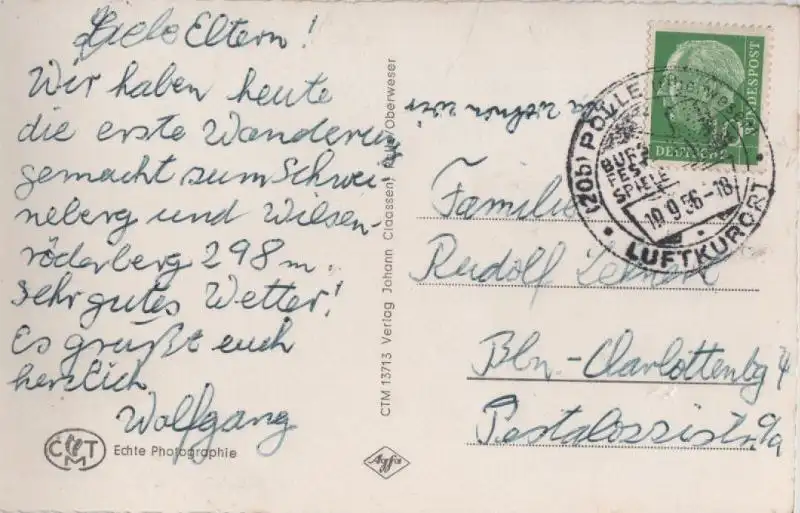 Liebe Eltern!
Wir haben heute
die erste Wanderung
gemacht zum Schwei-
neberg und Wilsen-
röderberg 298 m.
Sehr gutes Wetter!
Es grüßt euch
herzlich
Wolfgang
CMT
Echte Photographie
CTM 13713 Verlag Johann Claassen, Polle/Oberweser
Agfa
wohnen wir
DEUTSCHE BUNDESPOST
(20b) POLLE
BURG
FEST
SPIELE
19.9.56-18
LUFTKURORT
Familie
Rudolf
Bln.-Charlottenbg 4
Pestalozzistr. 9a